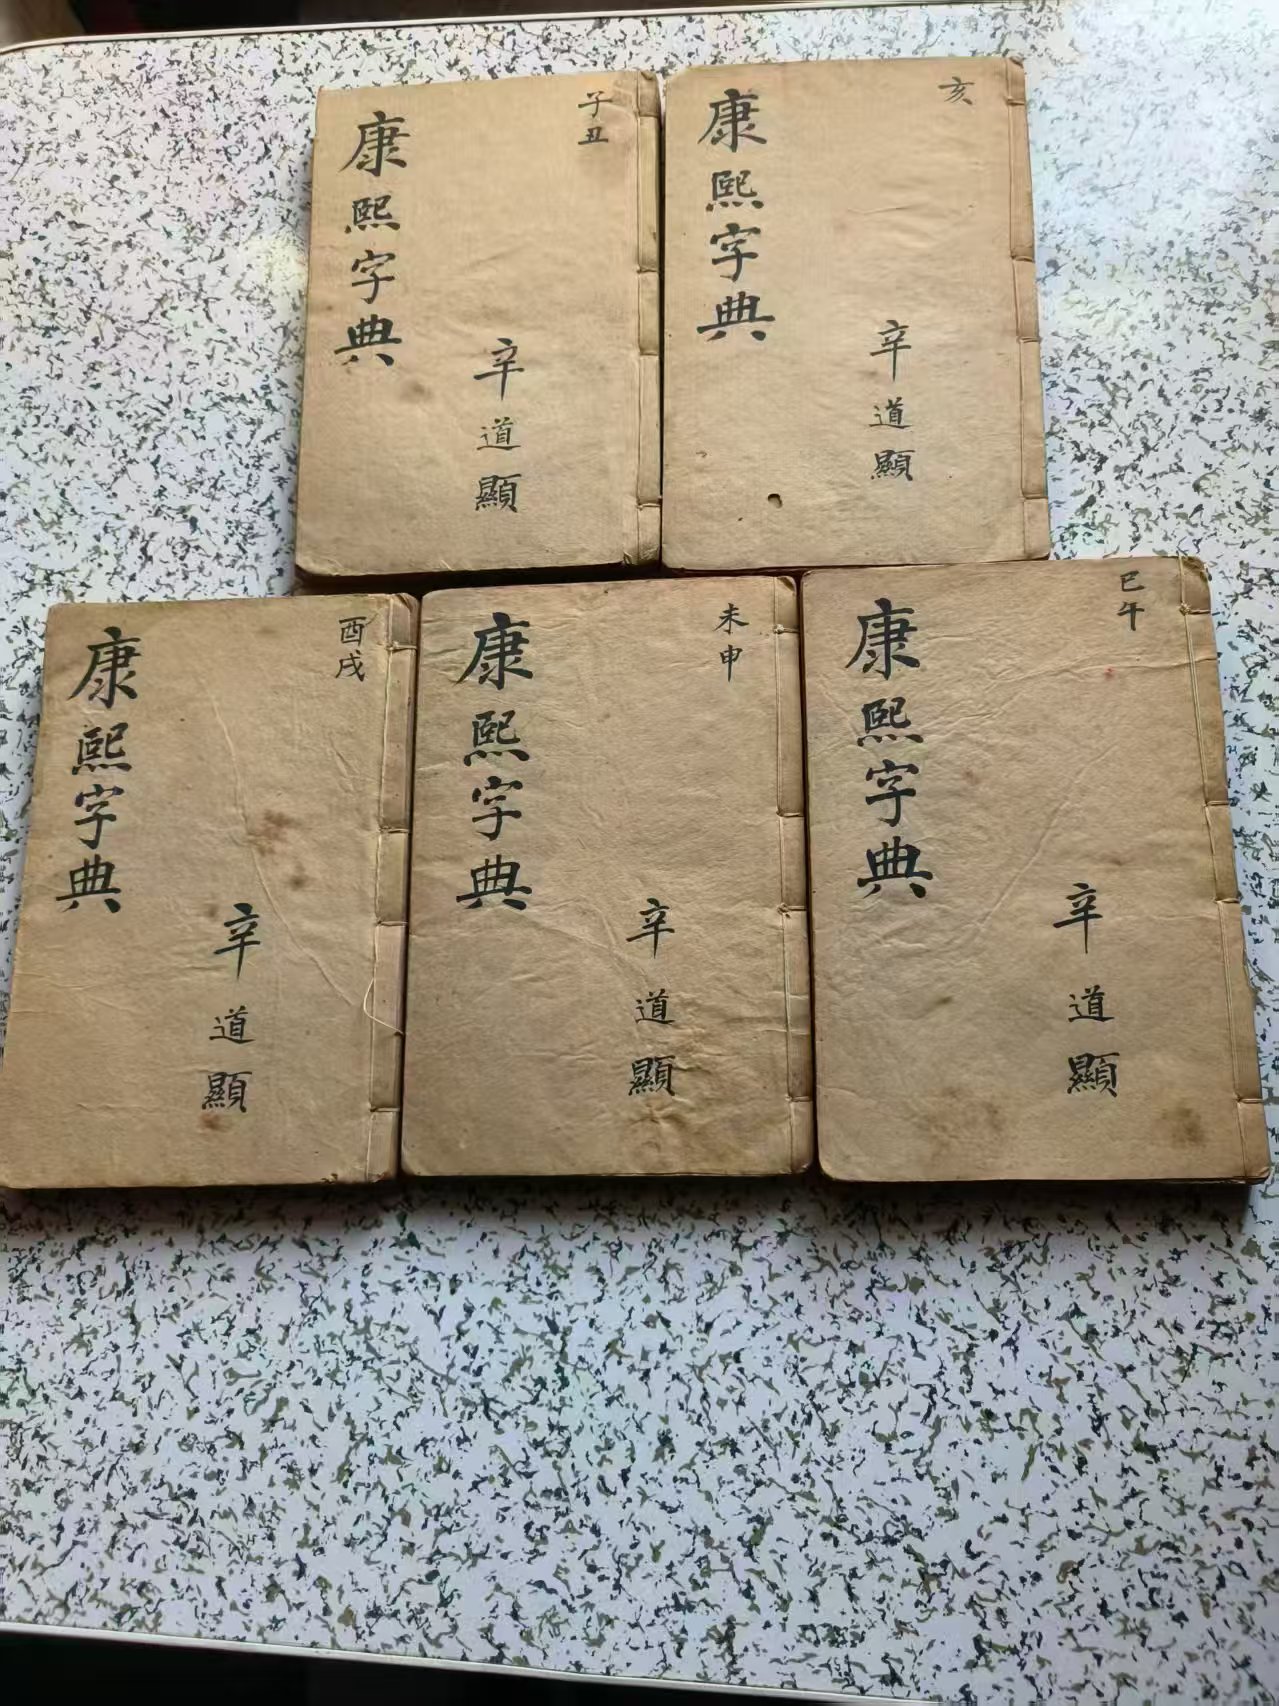 子丑
康熙字典
辛道顯
亥
康熙字典
辛道顯
酉戌
康熙字典
辛道顯
未申
康熙字典
辛道顯
巳午
康熙字典
辛道顯